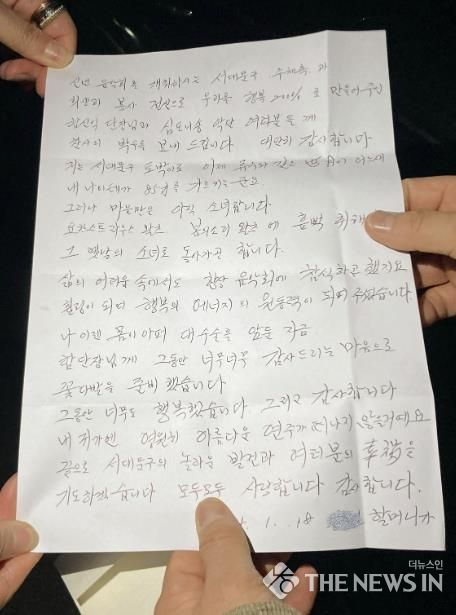 신년 음악회를 개최하시는 서대문구 주최측과
희생과 봉사 정신으로 우리를 행복 200%로 만들어주신
함신익 단장님과 심포니송 악단 여러분들께
감사의 박수를 보내 드립니다 대단히 감사합니다
저는 서대문구 토박이로 이제 유수와 같은 세월이 어느새
내 나이테가 를 가르키는군요.
그러나 마음만은 아직 소녀랍니다
요한스트라우스 왈츠 봄의소리 왈츠에 흠뻑 취해
그 옛날의 소녀로 돌아가곤 합니다.
삶의 어려움 속에서도 항상 음악회에 참석하곤 했지요
힐링이 되며 행복의 에너지의 원동력이 되어 주셨습니다.
나 이젠 몸이 아파 대수술을 앞둔 지금
함단장님께 그동안 너무너무 감사드리는 마음으로
꽃다발을 준비했습니다
그동안 너무도 행복했습니다 그리고 감사합니다
내 귀가엔 영원히 아름다운 연주가 떠나지 않을거예요
끝으로 서대문구의 놀라운 발전과 여러분의 幸福을
기도하겠습니다 모두모두 사랑합니다 감사합니다.
1. 18 할머니가
더뉴스인
THE NEWS IN